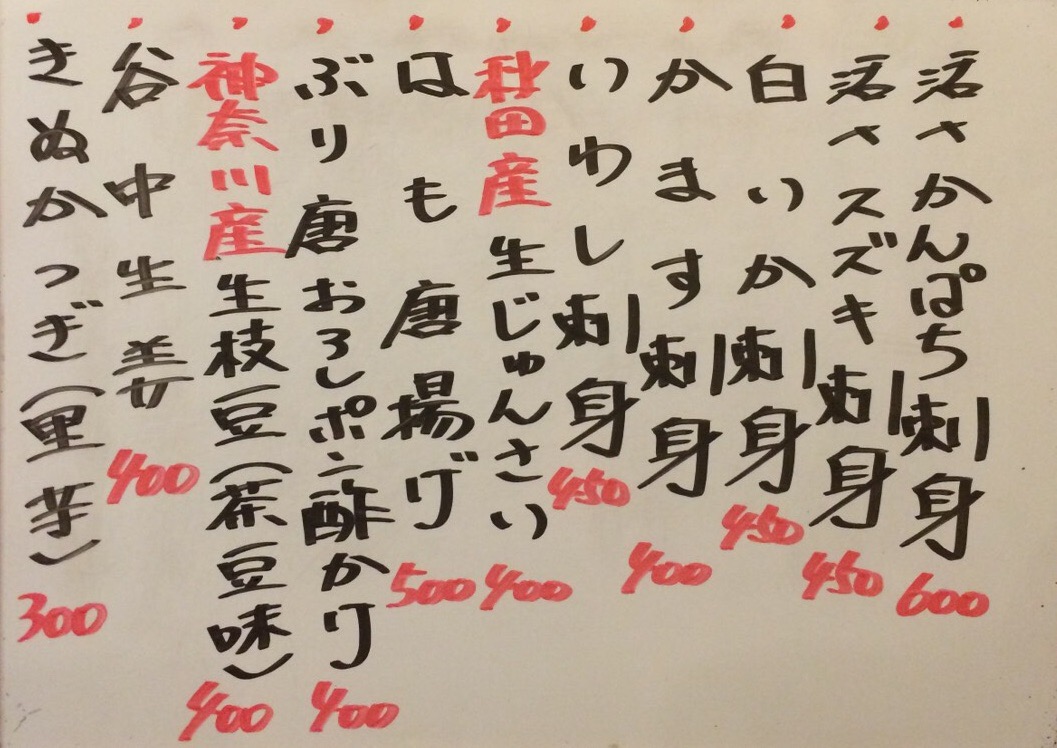 活さかんぱち刺身 600
活さスズキ刺身 450
白いか刺身 450
かます刺身 400
いわし刺身 450
秋田産生じゅんさい 400
はも唐揚げ 500
ぶり唐おろしポン酢かけ 400
神奈川産生枝豆(茶豆味) 400
谷中生姜 400
きぬかつぎ(里芋) 300